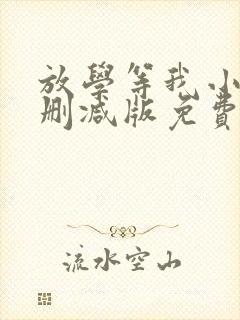 放學等我小
刪減版免費
流水空山